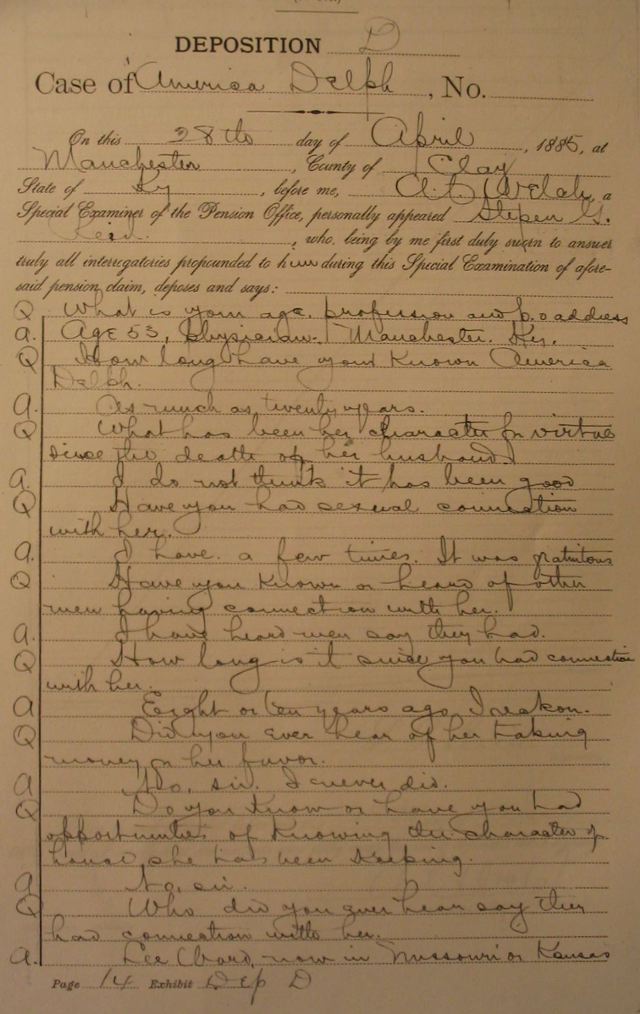 DEPOSITION D
Case of America Delph, No.
On this 28th day of April, 1885, at
Manchester, County of Clay
State of Ky, before me, a
Special Examiner of the Pension Office, personally appeared Stepen G.
, who, being by me first duly sworn to answer
truly all interrogatories propounded to him during this Special Examination of afore-
said pension claim, deposes and says:
Q What is your age, profession and p.o address
a. Age 53, Physician, Manchester, Ky.
Q How long have you known America
Delph.
a. As much as twenty years.
Q What has been her character for virtue
since the death of her husband
a. I do not think it has been good
Q Have you had sexual connection
with her.
a. I have. a few times. It was gratuitous
Q Have you known or heard of other
men having connection with her.
a. I have heard men say they had.
Q How long is it since you had connection
with her.
a Eight or ten years ago, I reakon.
Q Did you ever hear of her taking
money for her favor.
a No, sir. I never did.
Q Do you know or have you had
opportunities of knowing the character of
house she has been keeping.
a No, sir.
Q Who did you ever hear say they
had connection with her.
a. Lee now in Missouri or Kansas
Page 14 Exhibit Dep D